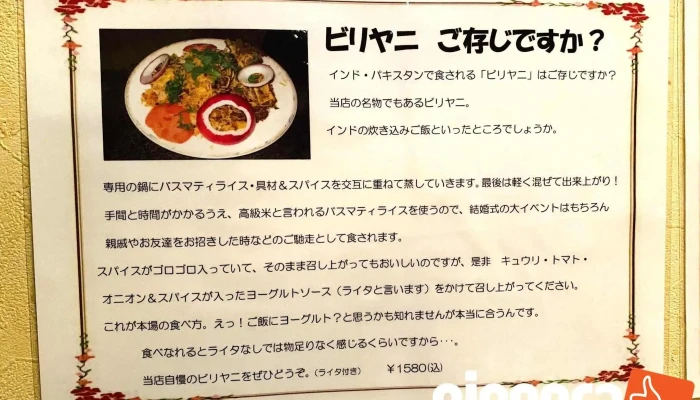 ビリヤニ ご存じですか？
インド・パキスタンで食される「ビリヤニ」はご存じですか？
当店の名物でもあるビリヤニ。
インドの炊き込みご飯といったところでしょうか。
専用の鍋にバスマティライス・具材＆スパイスを交互に重ねて蒸していきます。最後は軽く混ぜて出来上がり！
手間と時間がかかるうえ、高級米と言われるバスマティライスを使うので、結婚式の大イベントはもちろん
親戚やお友達をお招きした時などのご馳走として食されます。
スパイスがゴロゴロ入っていて、そのまま召し上がってもおいしいのですが、是非 キュウリ・トマト・
オニオン＆スパイスが入ったヨーグルトソース（ライタと言います）をかけて召し上がってください。
これが本場の食べ方。えっ！ご飯にヨーグルト？と思うかも知れませんが本当に合うんです。
食べなれるとライタなしでは物足りなく感じるくらいですから・・・。
当店自慢のビリヤニをぜひどうぞ。（ライタ付き） ￥1580（込）